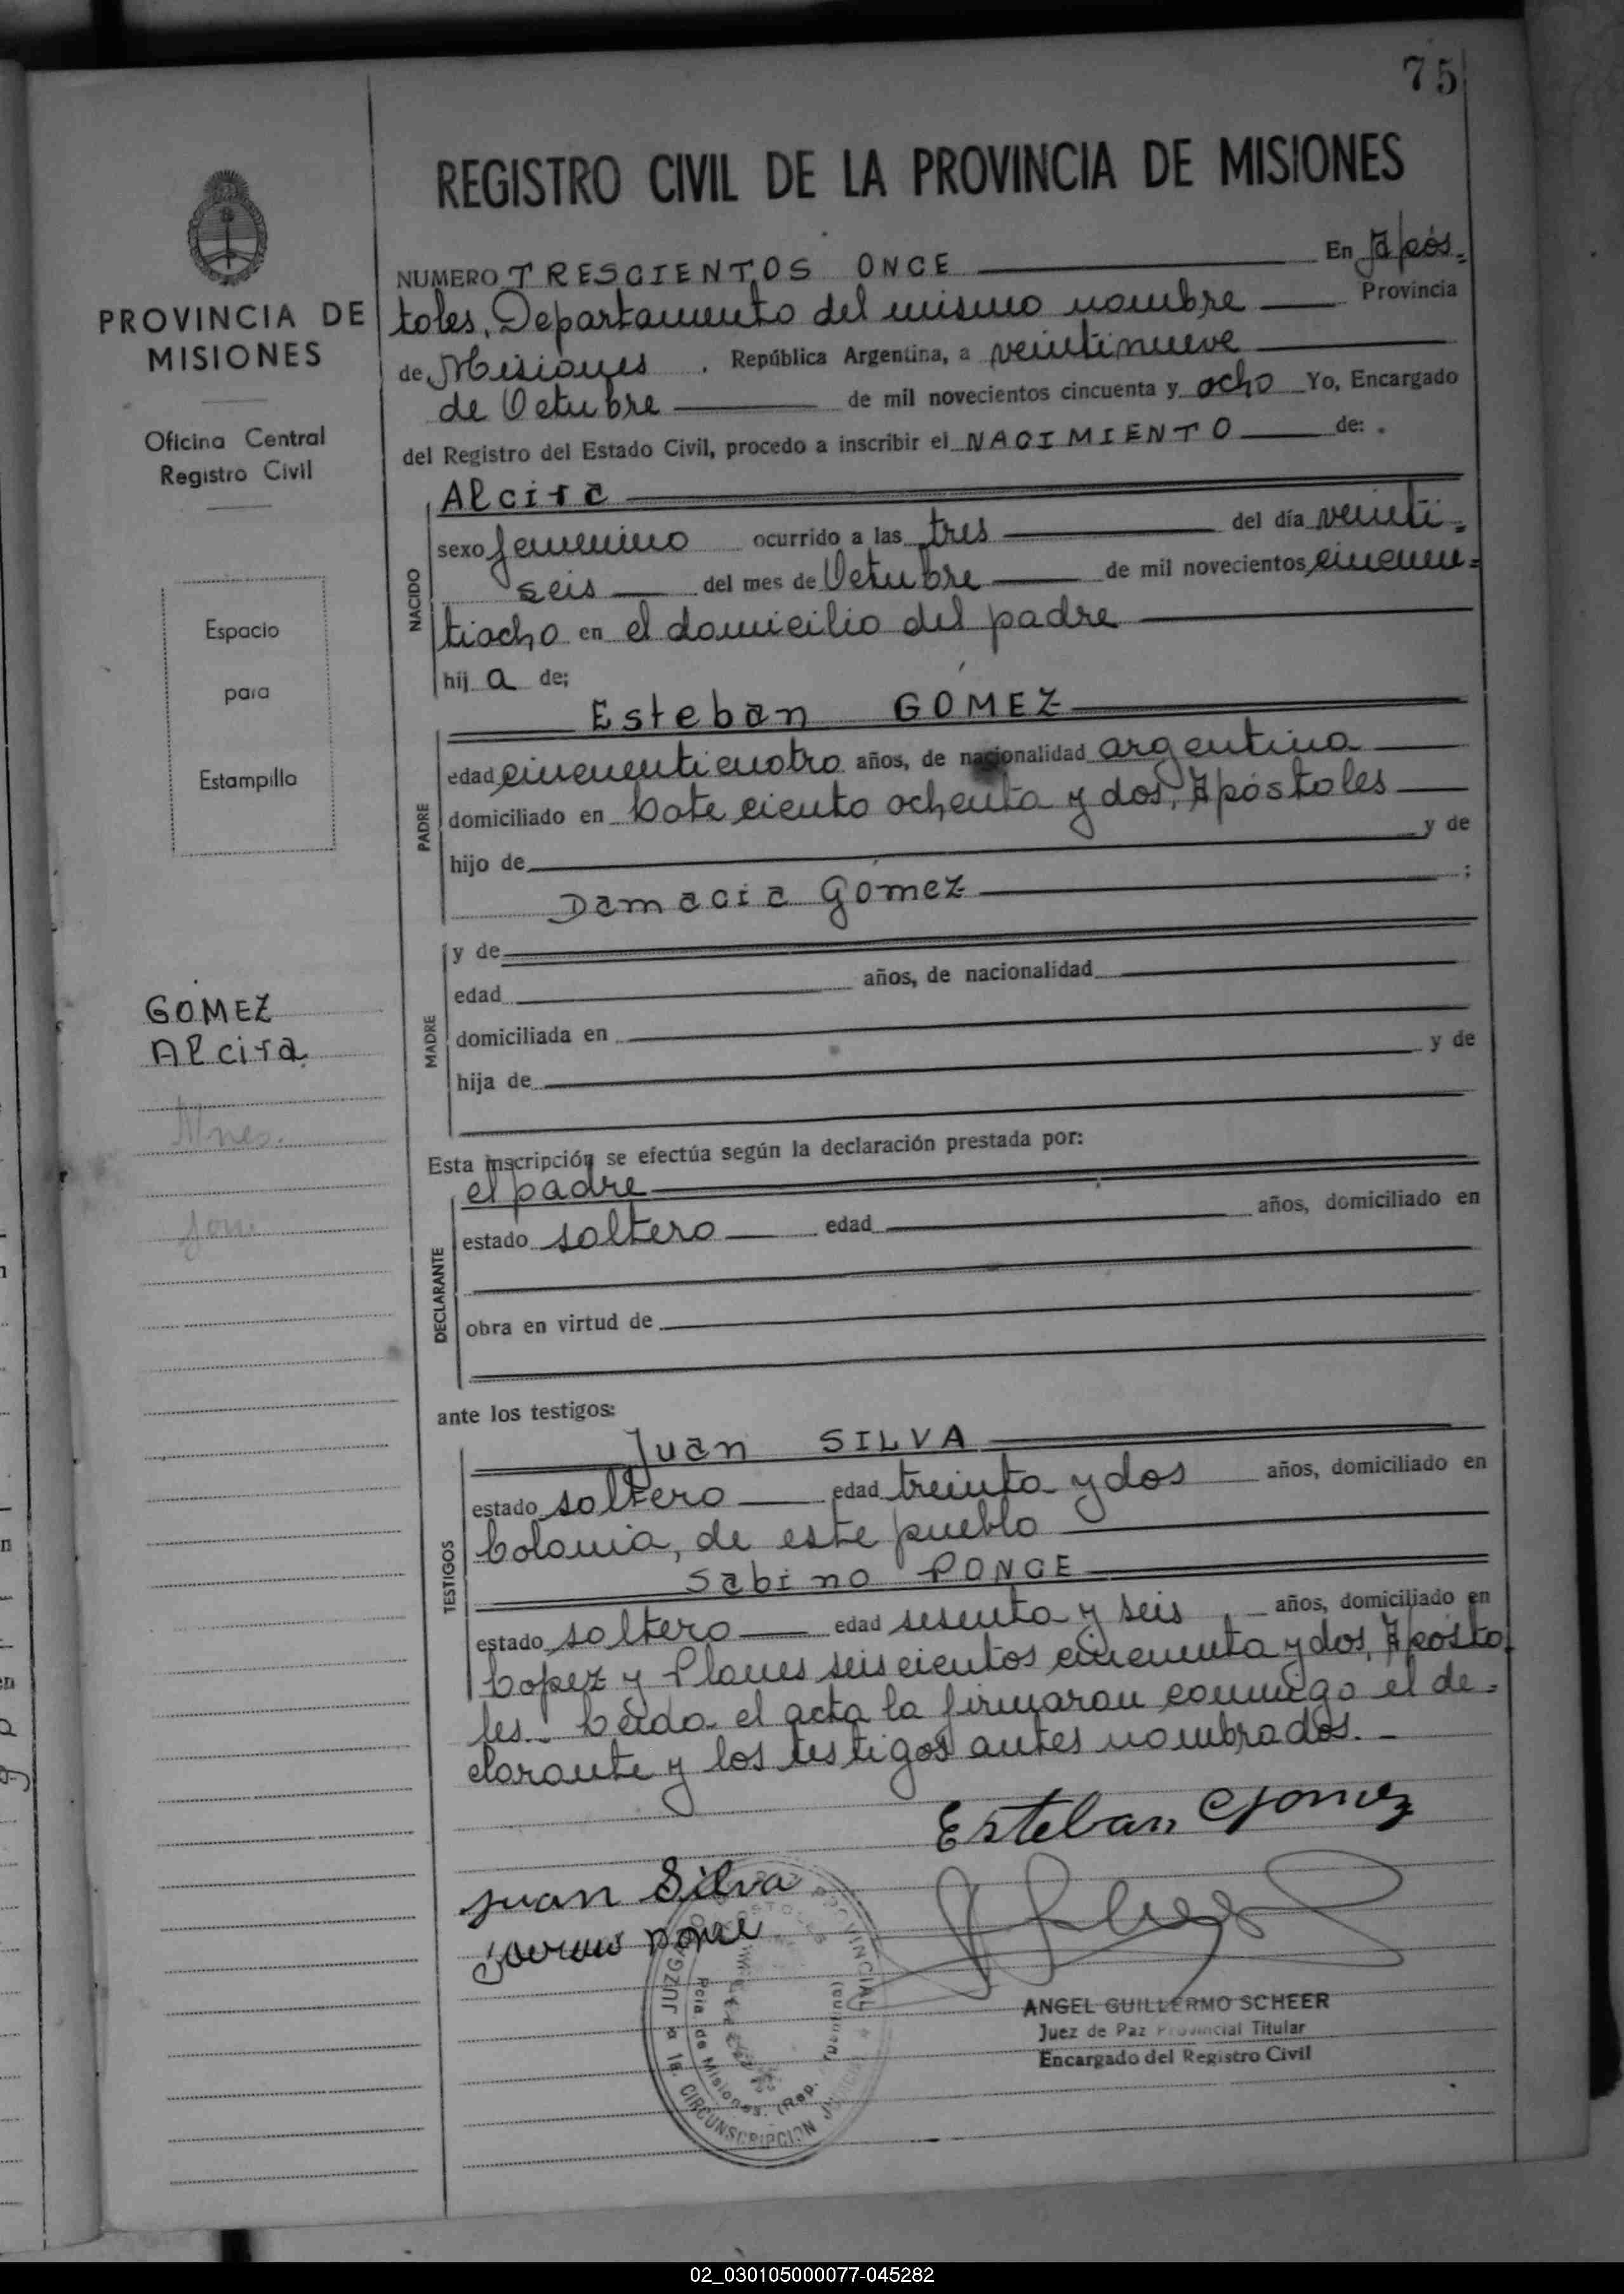 75
REGISTRO CIVIL DE LA PROVINCIA DE MISIONES
PROVINCIA DE
MISIONES
Oficina Central
Registro Civil
Espacio
para
Estampilla
GOMEZ
Alcira
NUMERO TRESCIENTOS ONCE En Após-
toles, Departamento del mismo nombre Provincia
de Misiones, República Argentina, a veintinueve
de Octubre de mil novecientos cincuenta y ocho Yo, Encargado
del Registro del Estado Civil, procedo a inscribir el NACIMIENTO de:
NACIDO
Alcira
sexo femenino ocurrido a las tres del día veinti-
seis del mes de Octubre de mil novecientos cincuen-
tiocho en el domicilio del padre
hija de;
Esteban GOMEZ
PADRE
edad cincuenticuatro años, de nacionalidad argentino
domiciliado en Lote ciento ochenta y dos, Apóstoles
hijo de y de
Damacia Gómez ;
MADRE
y de
edad años, de nacionalidad
domiciliada en
hija de y de
Esta inscripción se efectúa según la declaración prestada por:
DECLARANTE
el padre
estado soltero edad años, domiciliado en
obra en virtud de
ante los testigos:
TESTIGOS
Juan SILVA
estado soltero edad treinta y dos años, domiciliado en
Colonia, de este pueblo
Sabino PONCE
estado soltero edad sesenta y seis años, domiciliado en
Lopez y Planes seiscientos cincuenta y dos, Aposto
les.- Leida el acta la firmaron conmigo el de-
clarante y los testigos antes nombrados.-
Esteban Gomez
Juan Silva
JUZGADO DE PAZ PROVINCIAL
APOSTOLES
Pcia. de Misiones. (Rep. Argentina)
1a. CIRCUNSCRIPCION JUDICIAL
ANGEL GUILLERMO SCHEER
Juez de Paz Provincial Titular
Encargado del Registro Civil
02_030105000077-045282